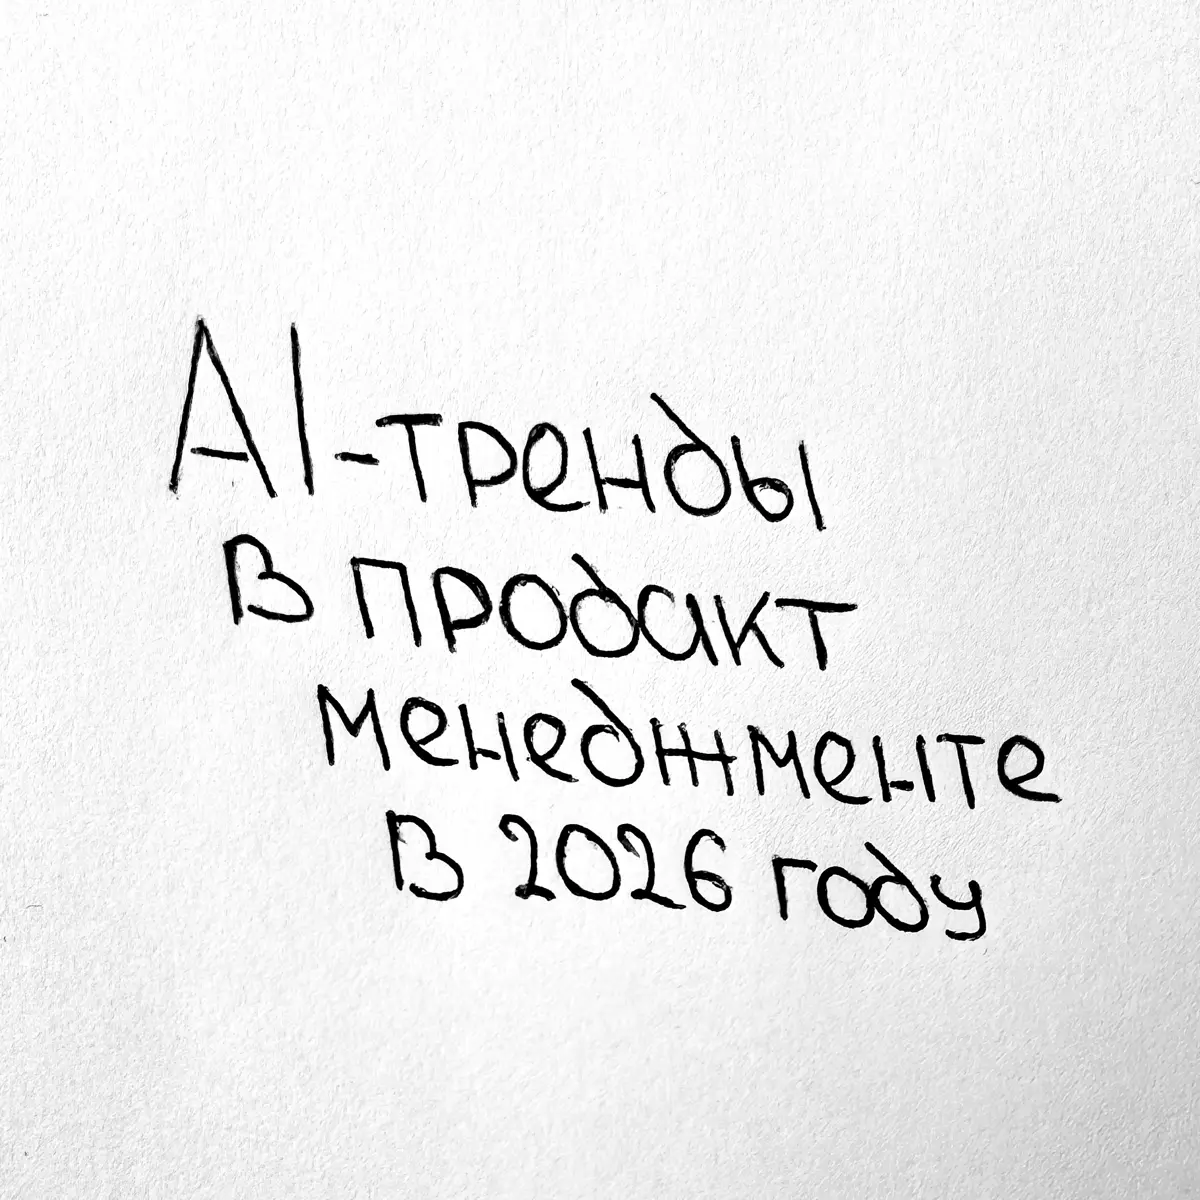 AI-тренды
в продакт
менеджменте
в 2026 году